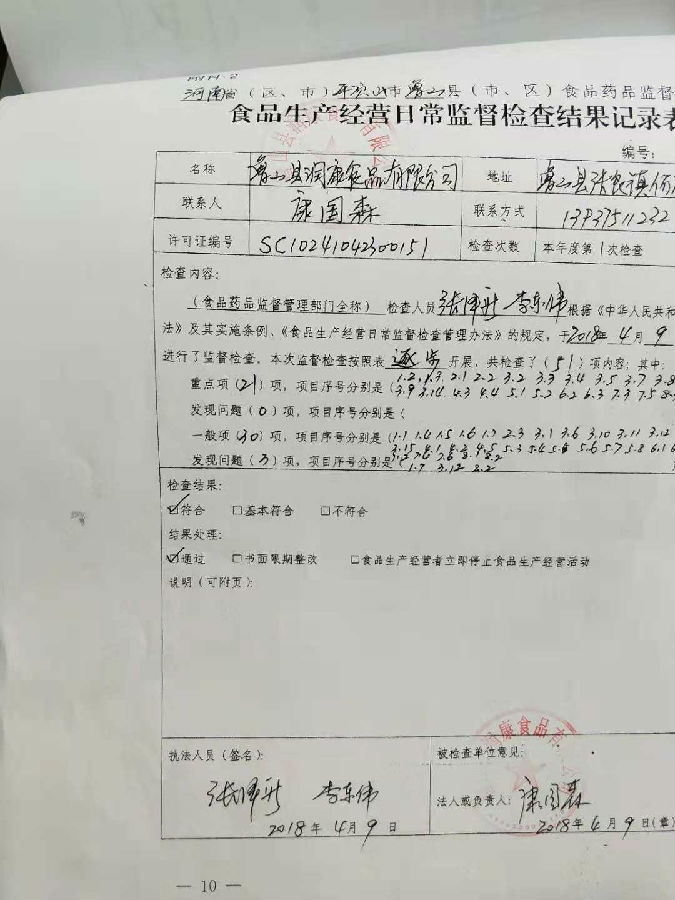 附件2
河南省（区、市）平顶山市鲁山县（市、区）食品药品监督
食品生产经营日常监督检查结果记录表
编号：
名称 鲁山县润康食品有限公司 地址 鲁山县张良镇
联系人 康国森 联系方式 13937511232
许可证编号 SC10241042300151 检查次数 本年度第1次检查
检查内容：
（食品药品监督管理部门全称） 检查人员 李东伟 根据《中华人民共和
法》及其实施条例、《食品生产经营日常监督检查管理办法》的规定，于2018年4月9
进行了监督检查。本次监督检查按照表 开展，共检查了（51）项内容；其中：
重点项（21）项，项目序号分别是（1.2 1.3 2.1 2.2 3.2 3.3 3.4 3.5 3.7 3.8
3.9 3.14 4.3 4.4 5.1 5.2 6.2 6.3 7.3 7.5 8.
发现问题（0）项，项目序号分别是（
一般项（30）项，项目序号分别是（1.1 1.4 1.5 1.6 1.7 2.3 3.1 3.6 3.10 3.11 3.12
5.3 5.4 5.5 5.6 5.7 5.8 6.1
发现问题（3）项，项目序号分别是（
1.7 3.12 8.2
检查结果：
☑符合 □基本符合 □不符合
结果处理：
☑通过 □书面限期整改 □食品生产经营者立即停止食品生产经营活动
说明（可附页）：
执法人员（签名）： 被检查单位意见：
李东伟 法人或负责人：康国森
2018年4月9日 2018年4月9日（章）
— 10 —